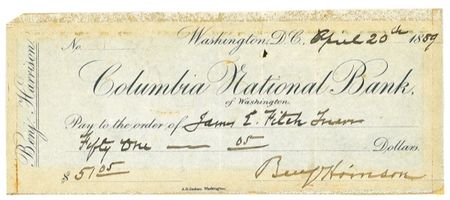 Benj. Harrison.
Washington, D.C. April 20th 1889
No.
Columbia National Bank,
of Washington.
Pay to the order of James E. Fitch Treas
Fifty One — 05 Dollars.
$ 51 05
Benj Harrison